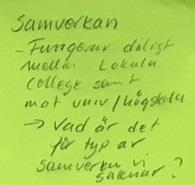 Samverkan
- Fungerar dåligt
mellan Lokala
College samt
mot univ/högskola
→ Vad är det
för typ av
samverkan vi
saknar?